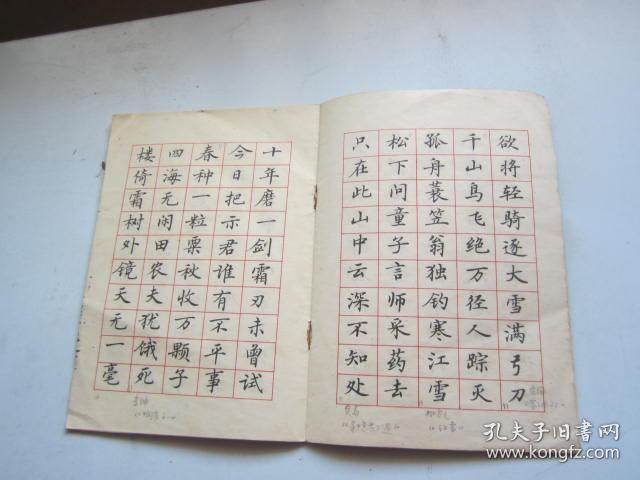 欲将轻骑逐大雪满弓刀
千山鸟飞绝万径人踪灭
孤舟蓑笠翁独钓寒江雪
松下问童子言师采药去
只在此山中云深不知处
十年磨一剑霜刃未曾试
今日把示君谁有不平事
春种一粒粟秋收万颗子
四海无闲田农夫犹饿死
楼倚霜树外镜天无一毫
孔夫子旧书网
www.kongfz.com